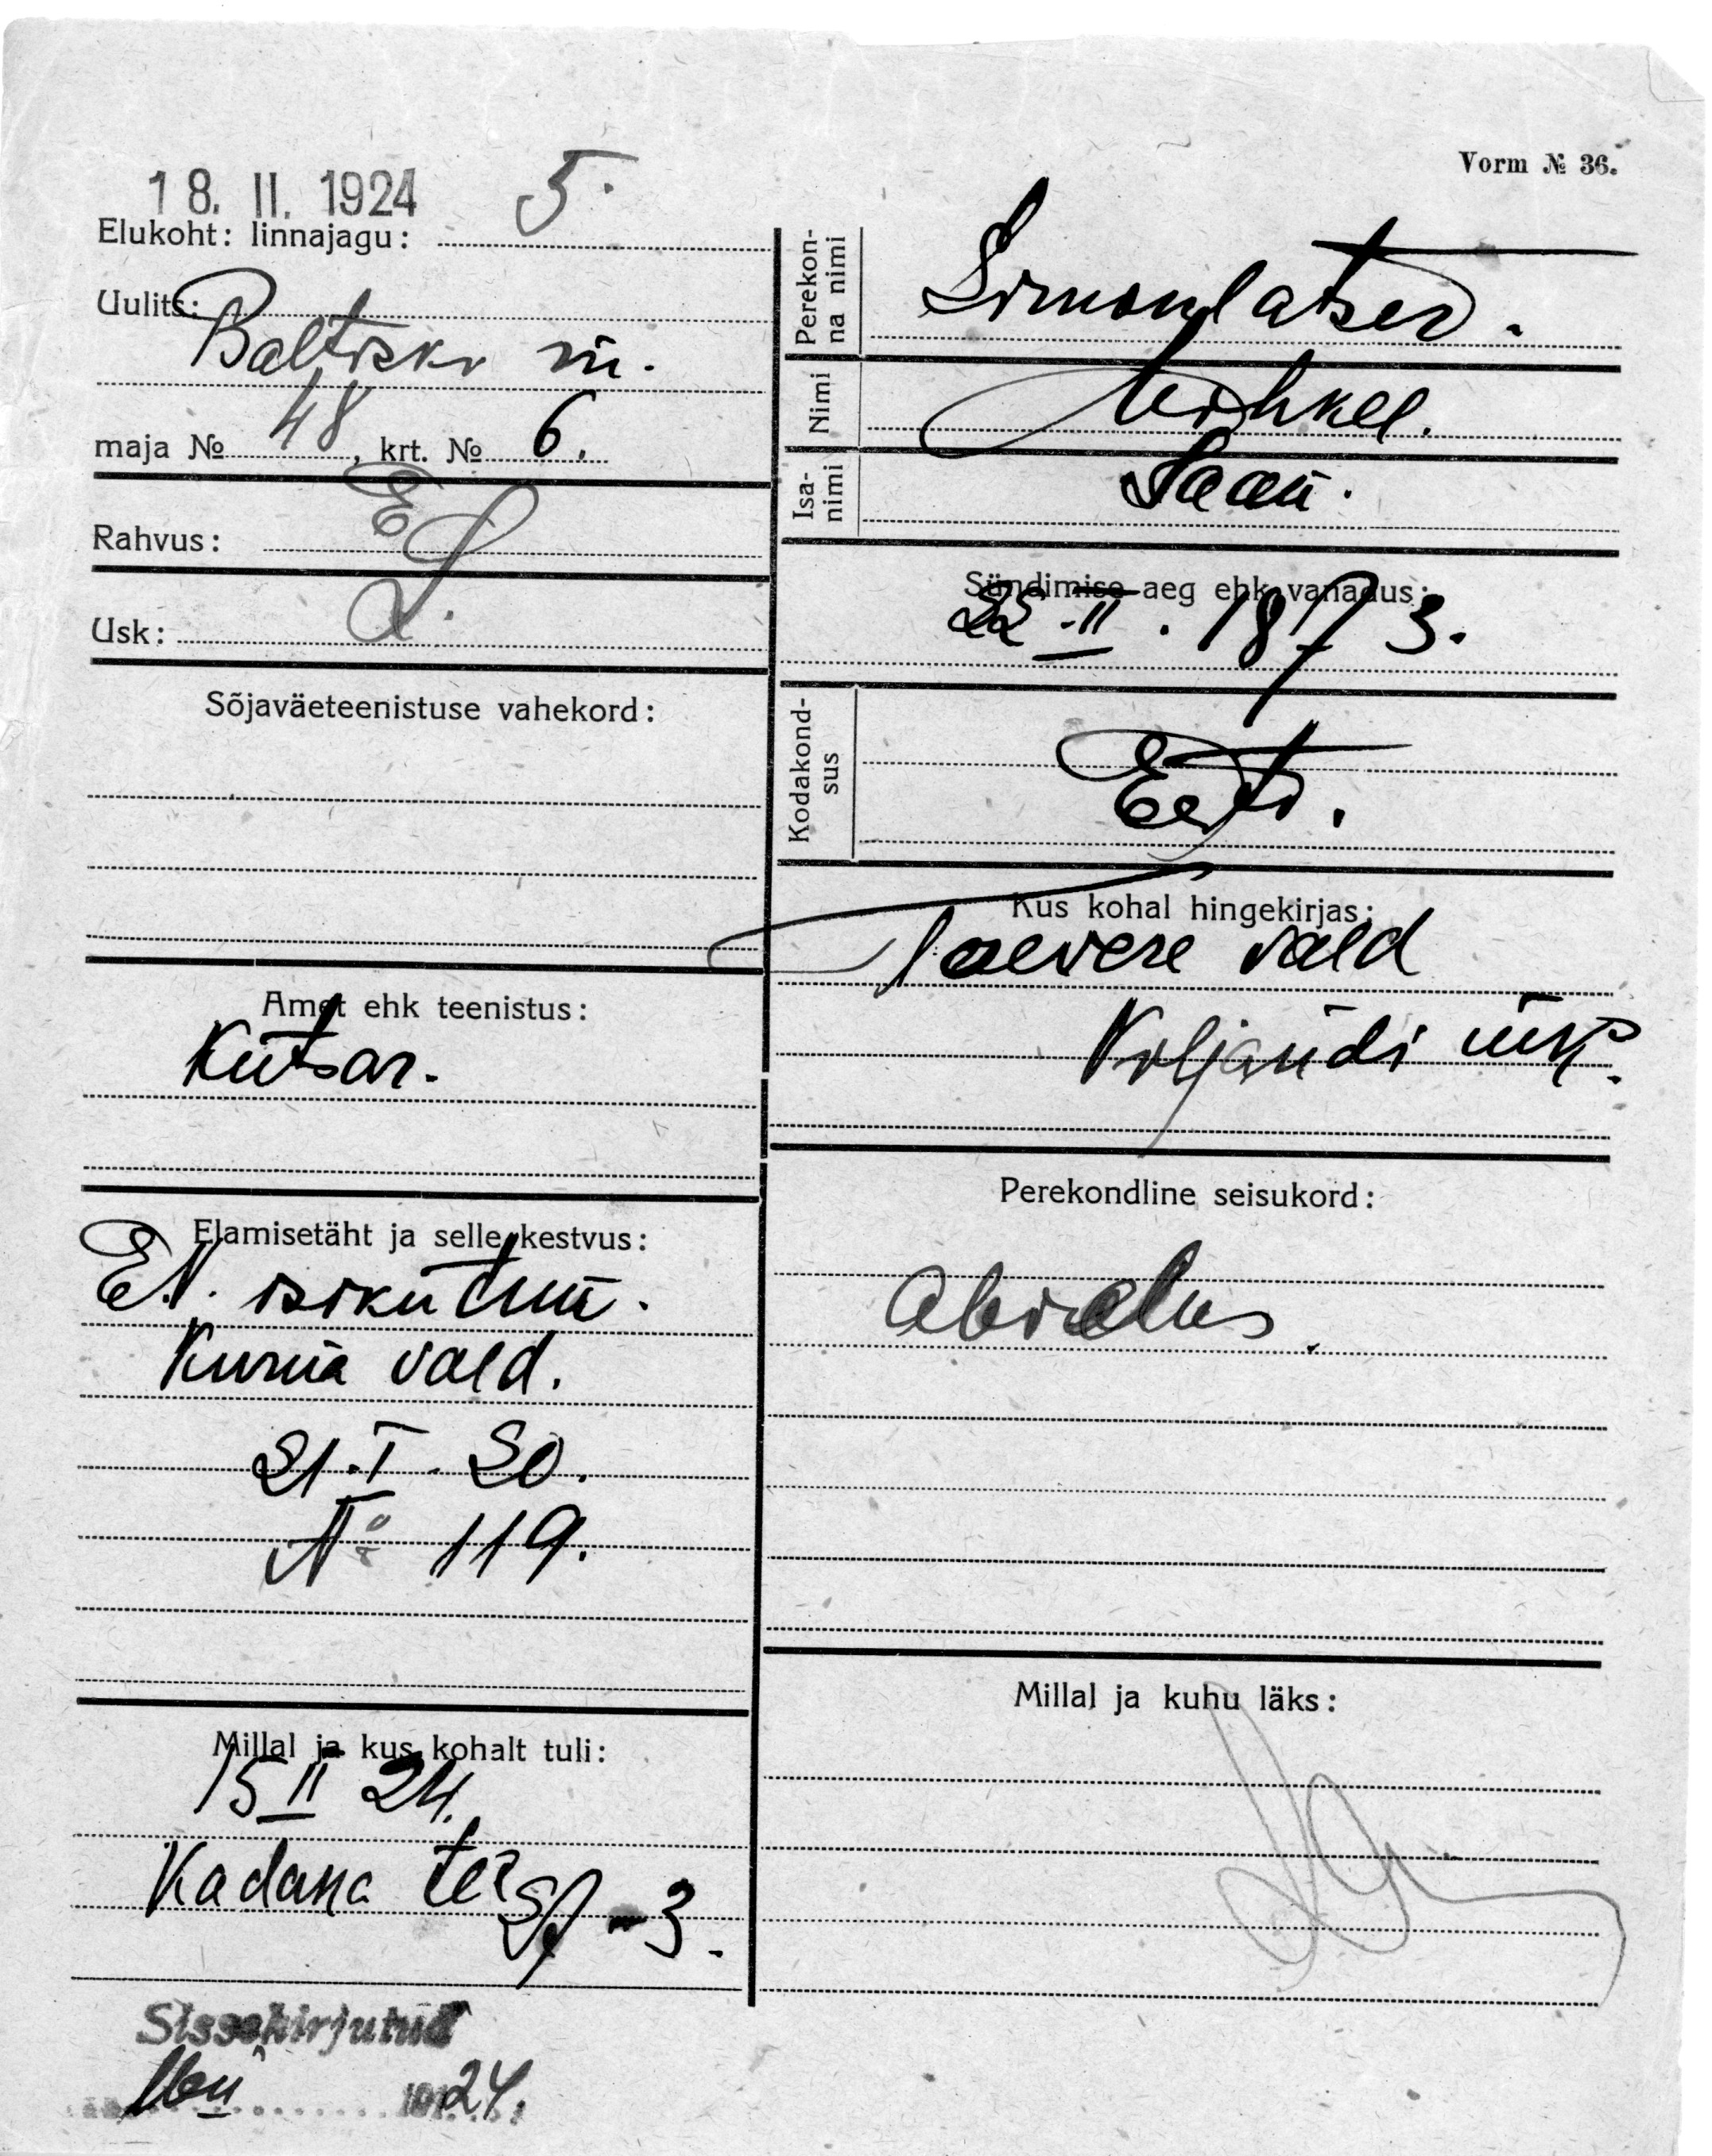 Vorm № 36.
18. II. 1924
Elukoht: linnajagu: 5.
Uulits:
Baltiski m.
maja № 48, krt. № 6.
Rahvus: E
Usk: L.
Sõjaväeteenistuse vahekord:
Amet ehk teenistus:
Kutsar.
Elamisetäht ja selle kestvus:
E.V. isikutun.
Kurna vald.
21.I.20.
№ 119.
Millal ja kus kohalt tuli:
15 II 24.
Kadaka tee 37-3.
Sissekirjutud
24.
Perekonna nimi
Simonlatser.
Nimi
Mihkel.
Isanimi
Jaan.
Sündimise aeg ehk vanadus:
22.II.1873.
Kodakondsus
Eesti.
Kus kohal hingekirjas:
Taevere vald
Viljandi mk.
Perekondline seisukord:
Abielus.
Millal ja kuhu läks: